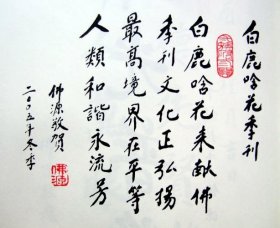 白鹿啥花季刊
白鹿啥花来献佛
季刊文化正弘揚
最高境界在平等
人類和諧永流芳
佛源敬賀
二00五年冬季